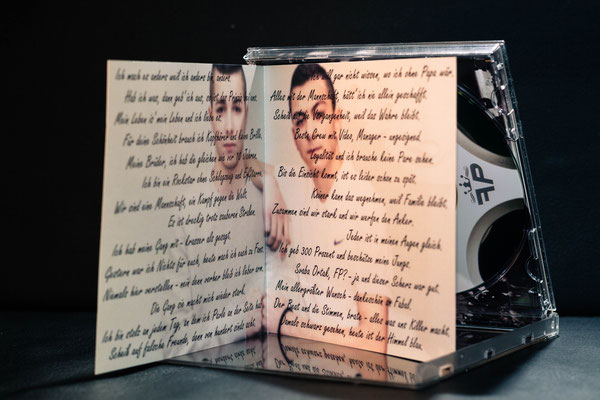 Ich mach es anders weil ich anders bin, anders.
Hab ich was, dann geb' ich aus, so ist das Prinzip
Mein Leben is' mein Leben und ich lebe es.
Für deine Schönheit brauch ich Kopfhörer und keine Brille.
Meine Brüder, ich hab die gleichen wie vor 10 Jahren.
Ich bin ein Rockstar ohne Schlagzeug und
Wir sind eine Mannschaft, ein Kampf gegen die Welt.
Es ist dreckig trotz sauberer Straßen.
Ich hab meine Gang mit - krasser als gesagt.
Gestern war ich Nichts für euch, heute mach ich euch zu Fans.
Niemals hier verstellen - mir denn vorher bleib ich lieber arm.
Die Gang sie macht mich wieder stark.
Ich bin stolz an jedem Tag, an dem ich Perle an der Seite hab.
Scheiß auf falsche Freunde, denn von hundert sind echt
Ich will gar nicht wissen, wo ich ohne Papa wär.
Alles mit der Mannschaft, hätt' ich nie allein geschafft.
Scheiß auf die Vergangenheit, weil das Wahre bleibt.
Beste Crew mit Video, Manager - ungesigned.
Loyalität und ich brauche keine Para sehen.
Bis die Einsicht kommt, ist es leider schon zu spät.
Keiner kann das wegnehmen, weil Familie bleibt.
Zusammen sind wir stark und wir werfen den Anker.
Jeder ist in meinen Augen gleich.
Ich geb 300 Prozent und beschütze meine Jungs.
Ortak, FP? - ja und dieser Scherz war gut.
Mein allergrößter Wunsch - dankeschön
Der Beat und die Stimmen, brate - alles was uns Killer macht.
Damals schwarz gesehen, heute ist der Himmel blau.
FP